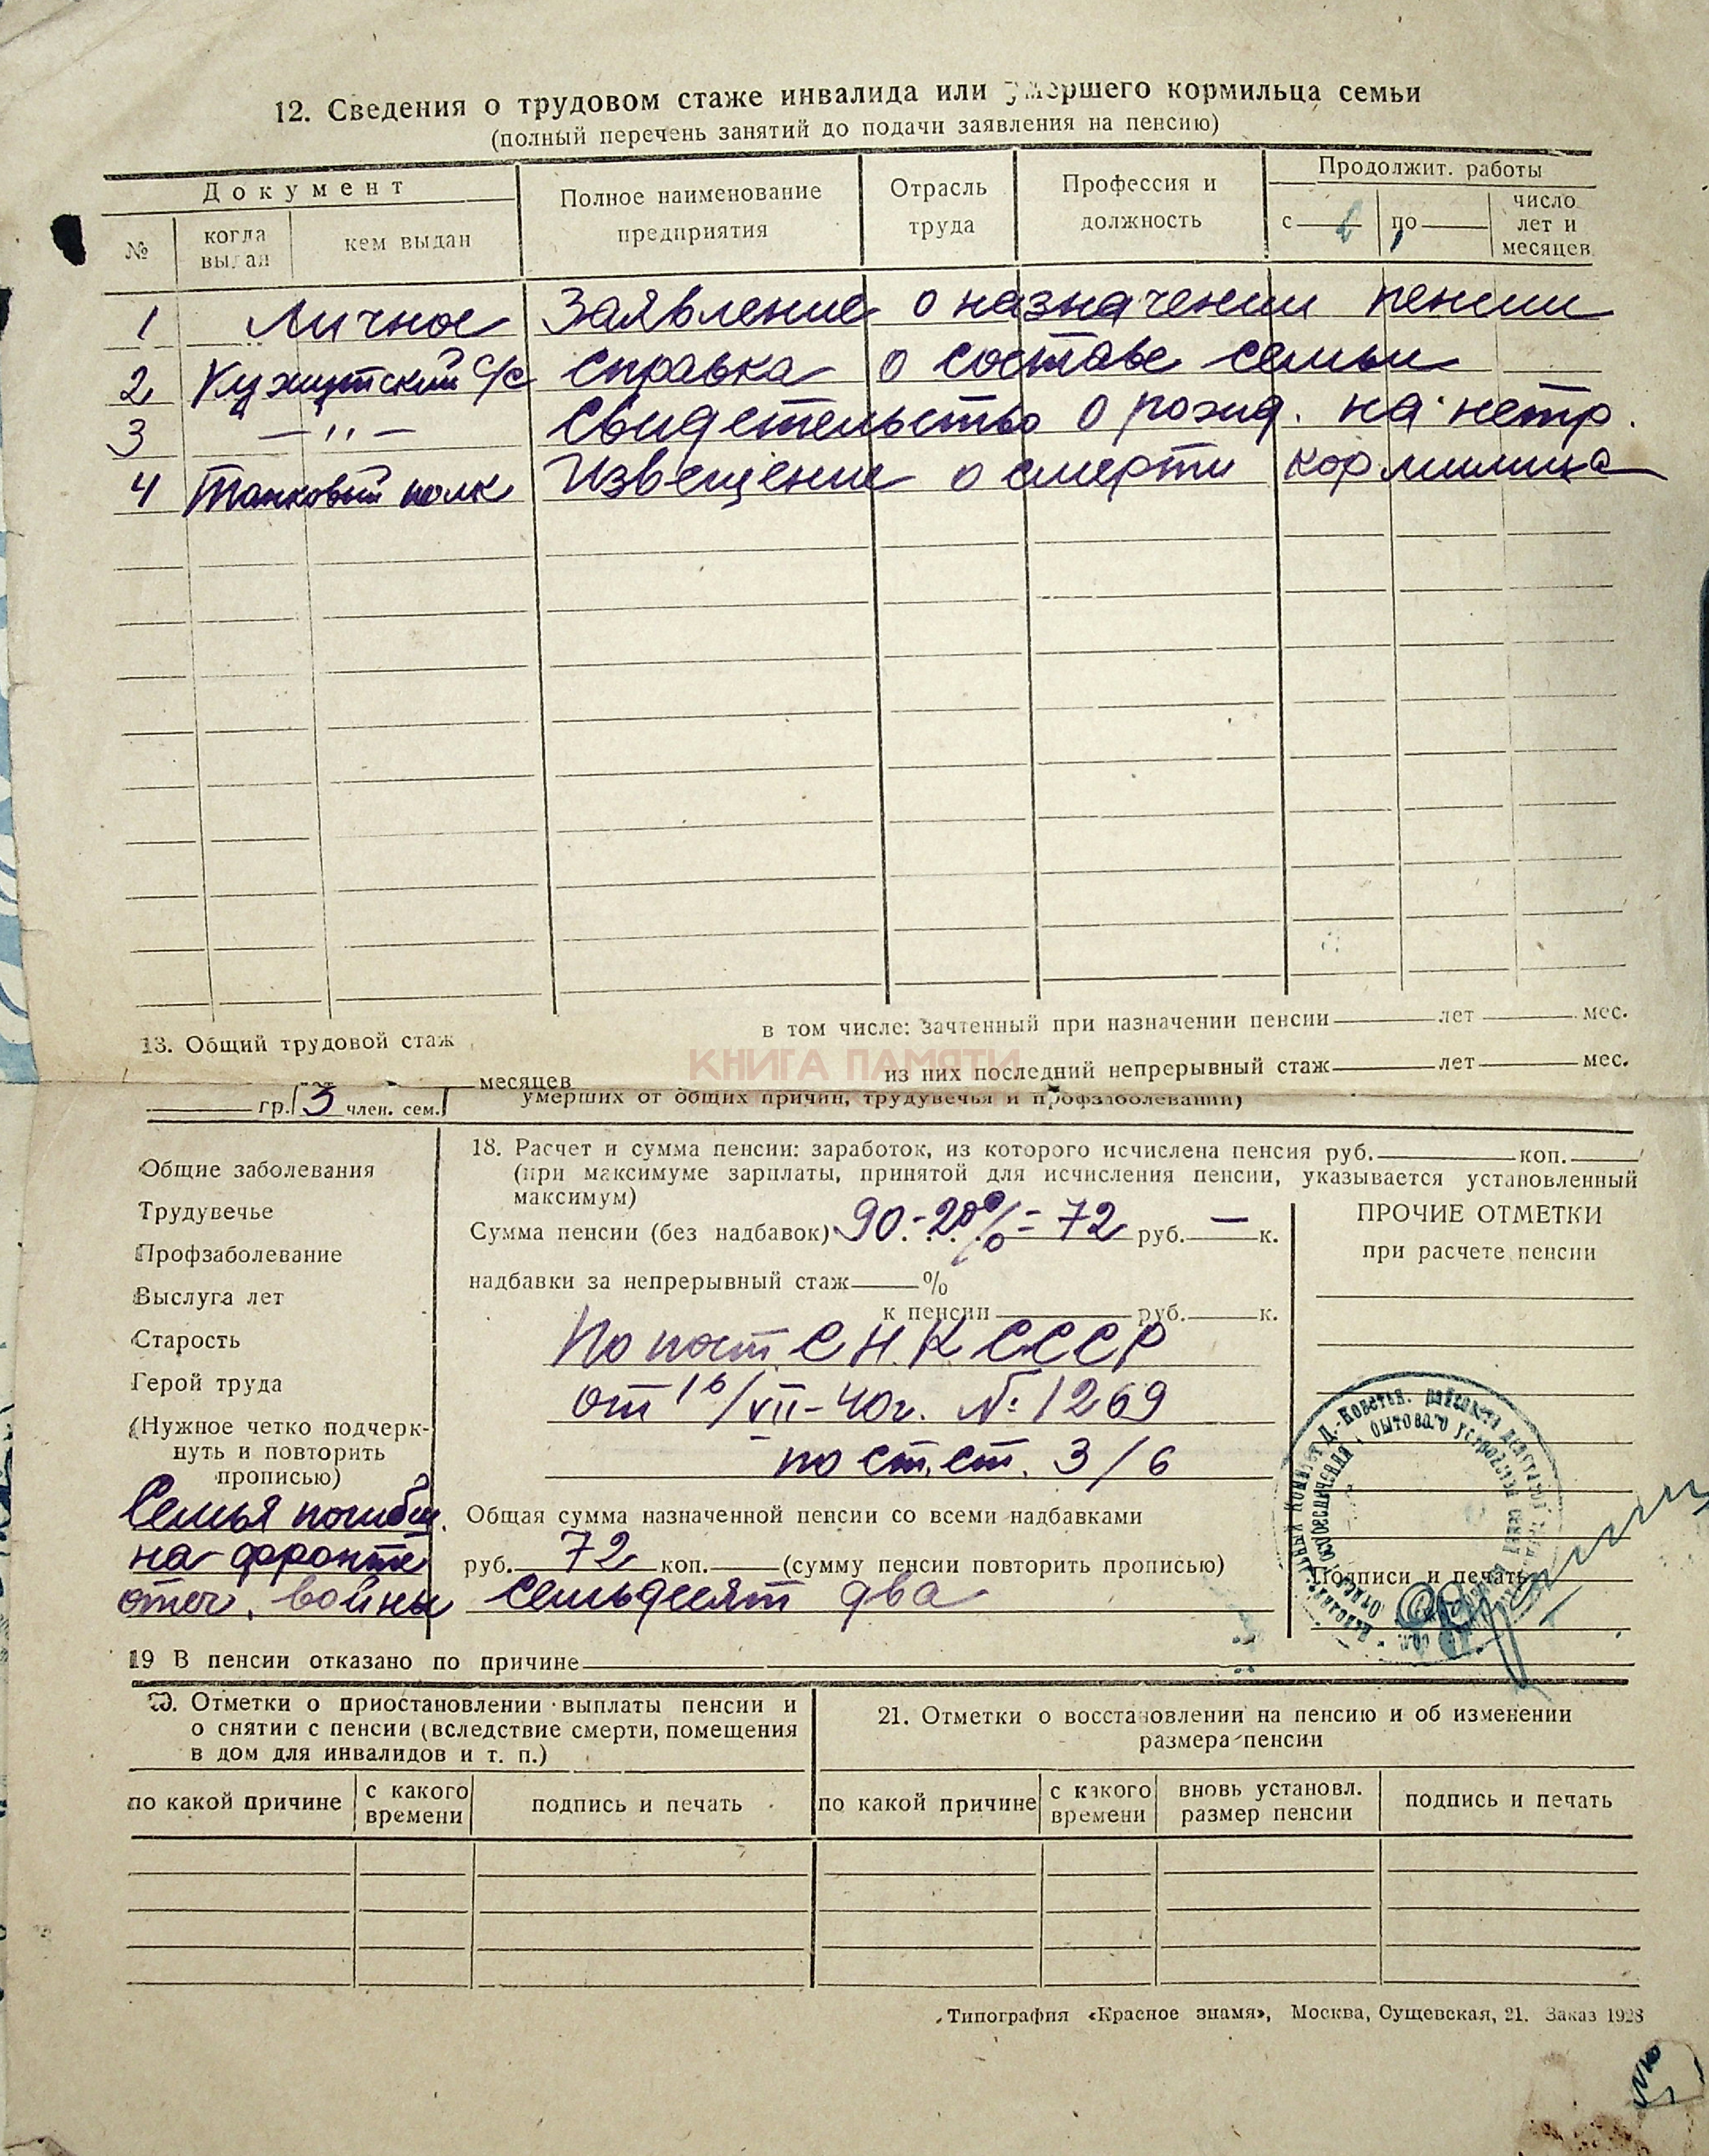 12. Сведения о трудовом стаже инвалида или умершего кормильца семьи
(полный перечень занятий до подачи заявления на пенсию)
Документ
Полное наименование предприятия
Отрасль труда
Профессия и должность
Продолжит. работы
№
когда выдан
кем выдан
с
по
число лет и месяцев
1 Личное Заявление о назначении пенсии
2 Кужутский с/с справка о составе семьи
3 —〃— свидетельство о рожд. на нетр.
4 Танковый полк Извещение о смерти кормильца
13. Общий трудовой стаж
в том числе: зачтенный при назначении пенсии лет мес.
КНИГА ПАМЯТИ
месяцев
из них последний непрерывный стаж лет мес.
гр. 3 член. сем.
умерших от общих причин, трудувечья и профзаболевании)
Общие заболевания
Трудувечье
Профзаболевание
Выслуга лет
Старость
Герой труда
(Нужное четко подчерк-
нуть и повторить
прописью)
Семья погибш.
на фронте
отеч. войны
18. Расчет и сумма пенсии: заработок, из которого исчислена пенсия руб. коп.
(при максимуме зарплаты, принятой для исчисления пенсии, указывается установленный
максимум)
Сумма пенсии (без надбавок) 90.-20%= 72 руб. — к.
надбавки за непрерывный стаж %
к пенсии руб. к.
По пост. СНК СССР
от 16/VII-40г. № 1269
по ст.ст. 3/6
Общая сумма назначенной пенсии со всеми надбавками
руб. 72 коп. (сумму пенсии повторить прописью)
семьдесят два
ПРОЧИЕ ОТМЕТКИ
при расчете пенсии
Подписи и печать
19 В пенсии отказано по причине
20. Отметки о приостановлении выплаты пенсии и
о снятии с пенсии (вследствие смерти, помещения
в дом для инвалидов и т. п.)
по какой причине
с какого времени
подпись и печать
21. Отметки о восстановлении на пенсию и об изменении
размера пенсии
по какой причине
с какого времени
вновь установл. размер пенсии
подпись и печать
Типография «Красное знамя», Москва, Сущевская, 21. Заказ 1928